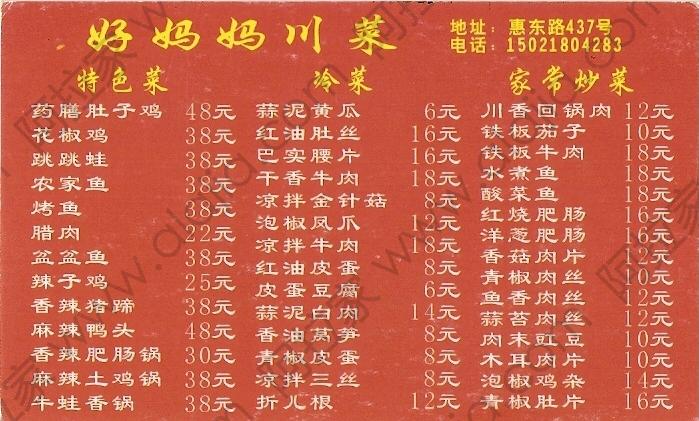 好妈妈川菜
地址：惠东路437号
电话：15021804283
特色菜
药膳肚子鸡 48元
花椒鸡 38元
跳跳蛙 38元
农家鱼 38元
烤鱼 38元
腊肉 22元
盆盆鱼 38元
辣子鸡 25元
香辣猪蹄 38元
麻辣鸭头 48元
香辣肥肠锅 30元
麻辣土鸡锅 38元
牛蛙香锅 38元
冷菜
蒜泥黄瓜 6元
红油肚丝 16元
巴实腰片 16元
干香牛肉 18元
凉拌金针菇 8元
泡椒凤爪 12元
凉拌牛肉 18元
红油皮蛋 8元
皮蛋豆腐 6元
蒜泥白肉 14元
香油青笋 8元
青椒皮蛋 8元
凉拌三丝 8元
折儿根 12元
家常炒菜
川香回锅肉 12元
铁板茄子 10元
铁板牛肉 18元
水煮鱼 18元
酸菜鱼 18元
红烧肥肠 16元
洋葱肥肠 16元
香菇肉片 12元
青椒肉丝 10元
鱼香肉丝 12元
蒜苔肉丝 12元
肉末豇豆 10元
木耳肉片 10元
泡椒鸡杂 14元
青椒肚片 16元